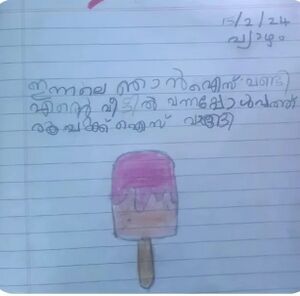 15/2/24
വ്യാഴം
ഇന്നലെ ഞാൻ ഐസ് വണ്ടി
എന്റെ വീട്ടിൽ വന്നപ്പോൾ പത്ത്
രൂപക്ക് ഐസ് വാങ്ങി